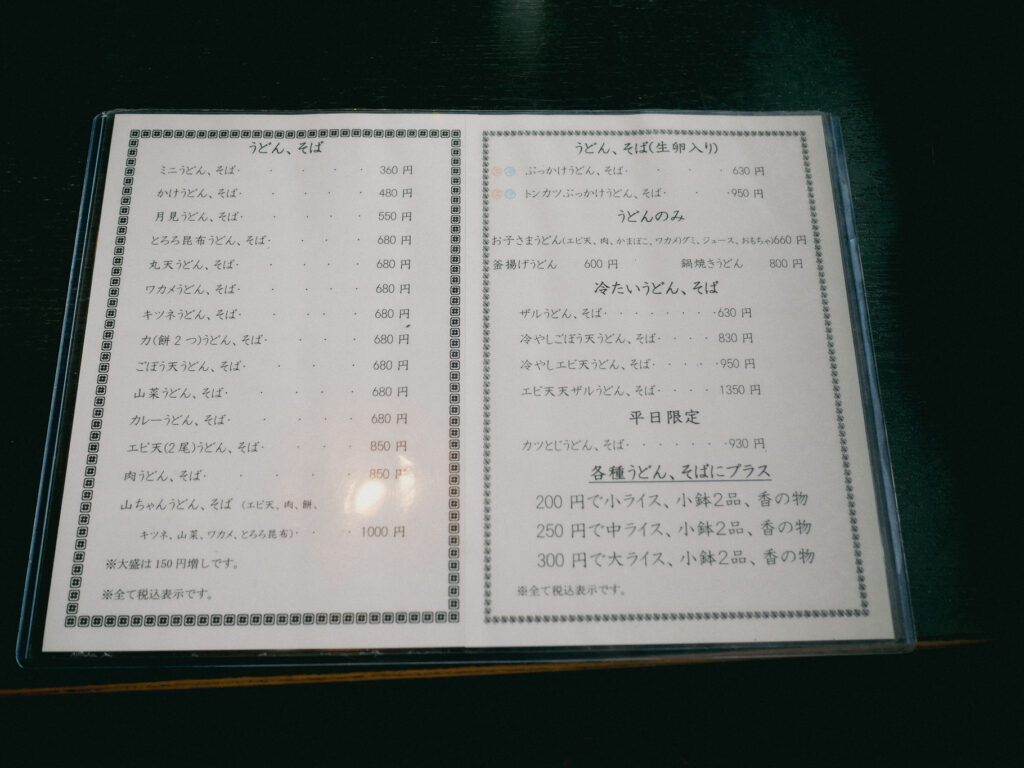 うどん、そば
ミニうどん、そば・ ・ ・ ・ ・ 360 円
かけうどん、そば・ ・ ・ ・ ・ 480 円
月見うどん、そば・ ・ ・ ・ ・ 550 円
とろろ昆布うどん、そば・ ・ ・ ・ 680 円
丸天うどん、そば・ ・ ・ ・ ・ 680 円
ワカメうどん、そば・ ・ ・ ・ ・ 680 円
キツネうどん、そば・ ・ ・ ・ ・ 680 円
力(餅2つ)うどん、そば・ ・ ・ ・ 680 円
ごぼう天うどん、そば・ ・ ・ ・ ・ 680 円
山菜うどん、そば・ ・ ・ ・ ・ 680 円
カレーうどん、そば・ ・ ・ ・ ・ 680 円
エビ天(2尾)うどん、そば・ ・ ・ ・ 850 円
肉うどん、そば・ ・ ・ ・ ・ 850 円
山ちゃんうどん、そば (エビ天、肉、餅、
キツネ、山菜、ワカメ、とろろ昆布)・ ・ ・ 1000 円
※大盛は150円増しです。
※全て税込表示です。
うどん、そば(生卵入り)
ぶっかけうどん、そば・ ・ ・ ・ 630 円
トンカツぶっかけうどん、そば・ ・ ・950 円
うどんのみ
お子さまうどん(エビ天、肉、かまぼこ、ワカメ)グミ、ジュース、おもちゃ)660 円
釜揚げうどん 600 円 鍋焼きうどん 800 円
冷たいうどん、そば
ザルうどん、そば・・・・・・・・630 円
冷やしごぼう天うどん、そば・・・・ 830 円
冷やしエビ天うどん、そば・・・・・950 円
エビ天天ザルうどん、そば・・・・ 1350 円
平日限定
カツとじうどん、そば・・・・・・・930 円
各種うどん、そばにプラス
200 円で小ライス、小鉢2品、香の物
250 円で中ライス、小鉢2品、香の物
300 円で大ライス、小鉢2品、香の物
※全て税込表示です。